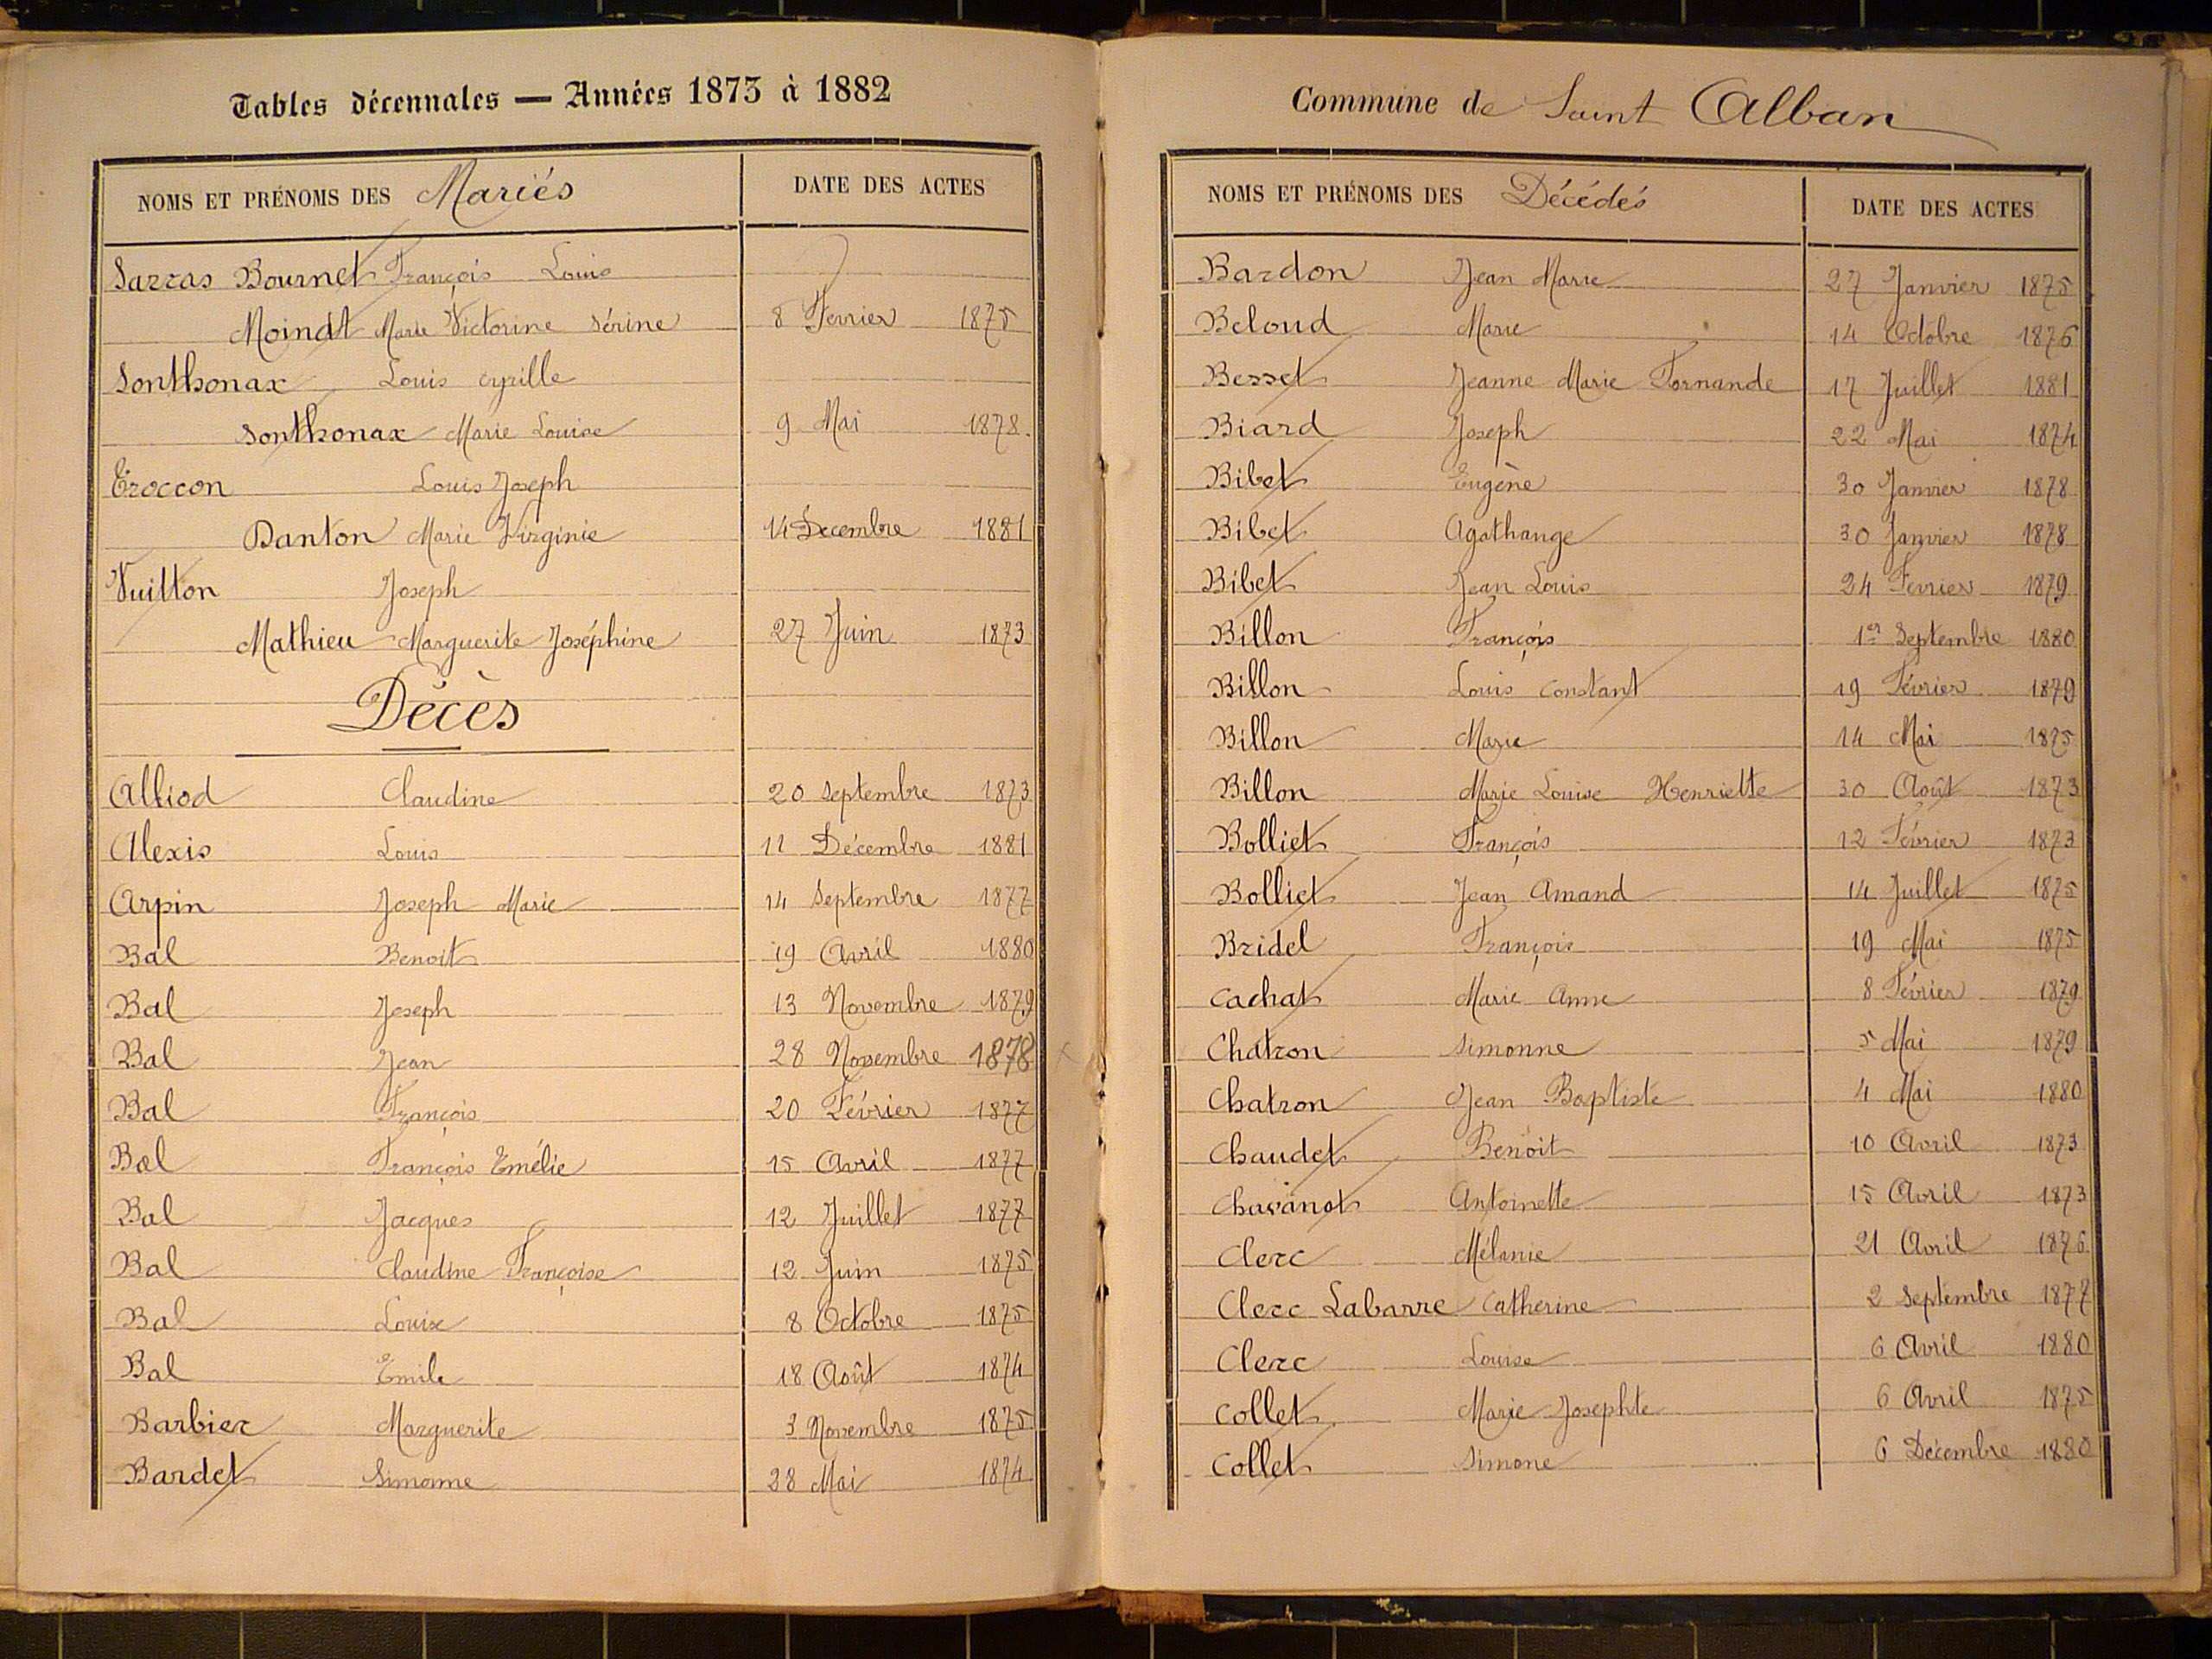 Tables décennales — Années 1873 à 1882
NOMS ET PRÉNOMS DES Mariés DATE DES ACTES
Sarras Bournet François Louis
Moindt Marie Victorine Sérine 8 Fevrier 1875
Sonthonax Louis Cyrille
Sonthonax Marie Louise 9 Mai 1878
Troccon Louis Joseph
Danton Marie Virginie 14 Decembre 1881
Vuitton Joseph
Mathieu Marguerite Joséphine 27 Juin 1873
Décès
Alliod Claudine 20 Septembre 1873
Alexis Louis 11 Décembre 1881
Arpin Joseph Marie 14 Septembre 1877
Bal Benoit 19 Avril 1880
Bal Joseph 13 Novembre 1879
Bal Jean 28 Novembre 1878
Bal François 20 Février 1877
Bal François Emélie 15 Avril 1877
Bal Jacques 12 Juillet 1877
Bal Claudine Françoise 12 Juin 1875
Bal Louise 8 Octobre 1875
Bal Emile 18 Août 1874
Barbier Marguerite 3 Novembre 1875
Bardet Simonne 28 Mai 1874
Commune de Saint Alban
NOMS ET PRÉNOMS DES Décédés DATE DES ACTES
Bardon Jean Marie 27 Janvier 1875
Beloud Marie 14 Octobre 1876
Besset Jeanne Marie Fernande 17 Juillet 1881
Biard Joseph 22 Mai 1874
Bibet Eugène 30 Janvier 1878
Bibet Agathange 30 Janvier 1878
Bibet Jean Louis 24 Fevrier 1879
Billon François 1er Septembre 1880
Billon Louis Constant 19 Février 1879
Billon Marie 14 Mai 1875
Billon Marie Louise Henriette 30 Août 1873
Bolliet François 12 Février 1873
Bolliet Jean Amand 14 Juillet 1875
Bridel François 19 Mai 1875
Cachat Marie Anne 8 Février 1879
Chatron Simonne 5 Mai 1879
Chatron Jean Baptiste 4 Mai 1880
Chaudet Benoit 10 Avril 1873
Chavanot Antoinette 15 Avril 1873
Clerc Mélanie 21 Avril 1876
Clerc Labarre Catherine 2 Septembre 1877
Clerc Louise 6 Avril 1880
Collet Marie Josephte 6 Avril 1875
Collet Simone 6 Décembre 1880